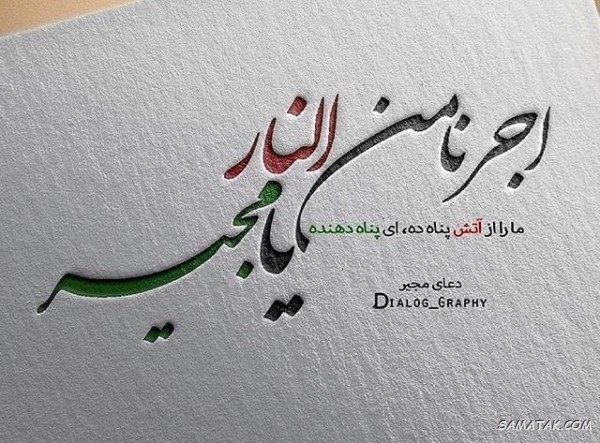 اجرنا من النار
یا مجیر
ما را از آتش پناه ده، ای پناه دهنده
دعای مجیر
DIALOG_GRAPHY
SAMATAK.COM